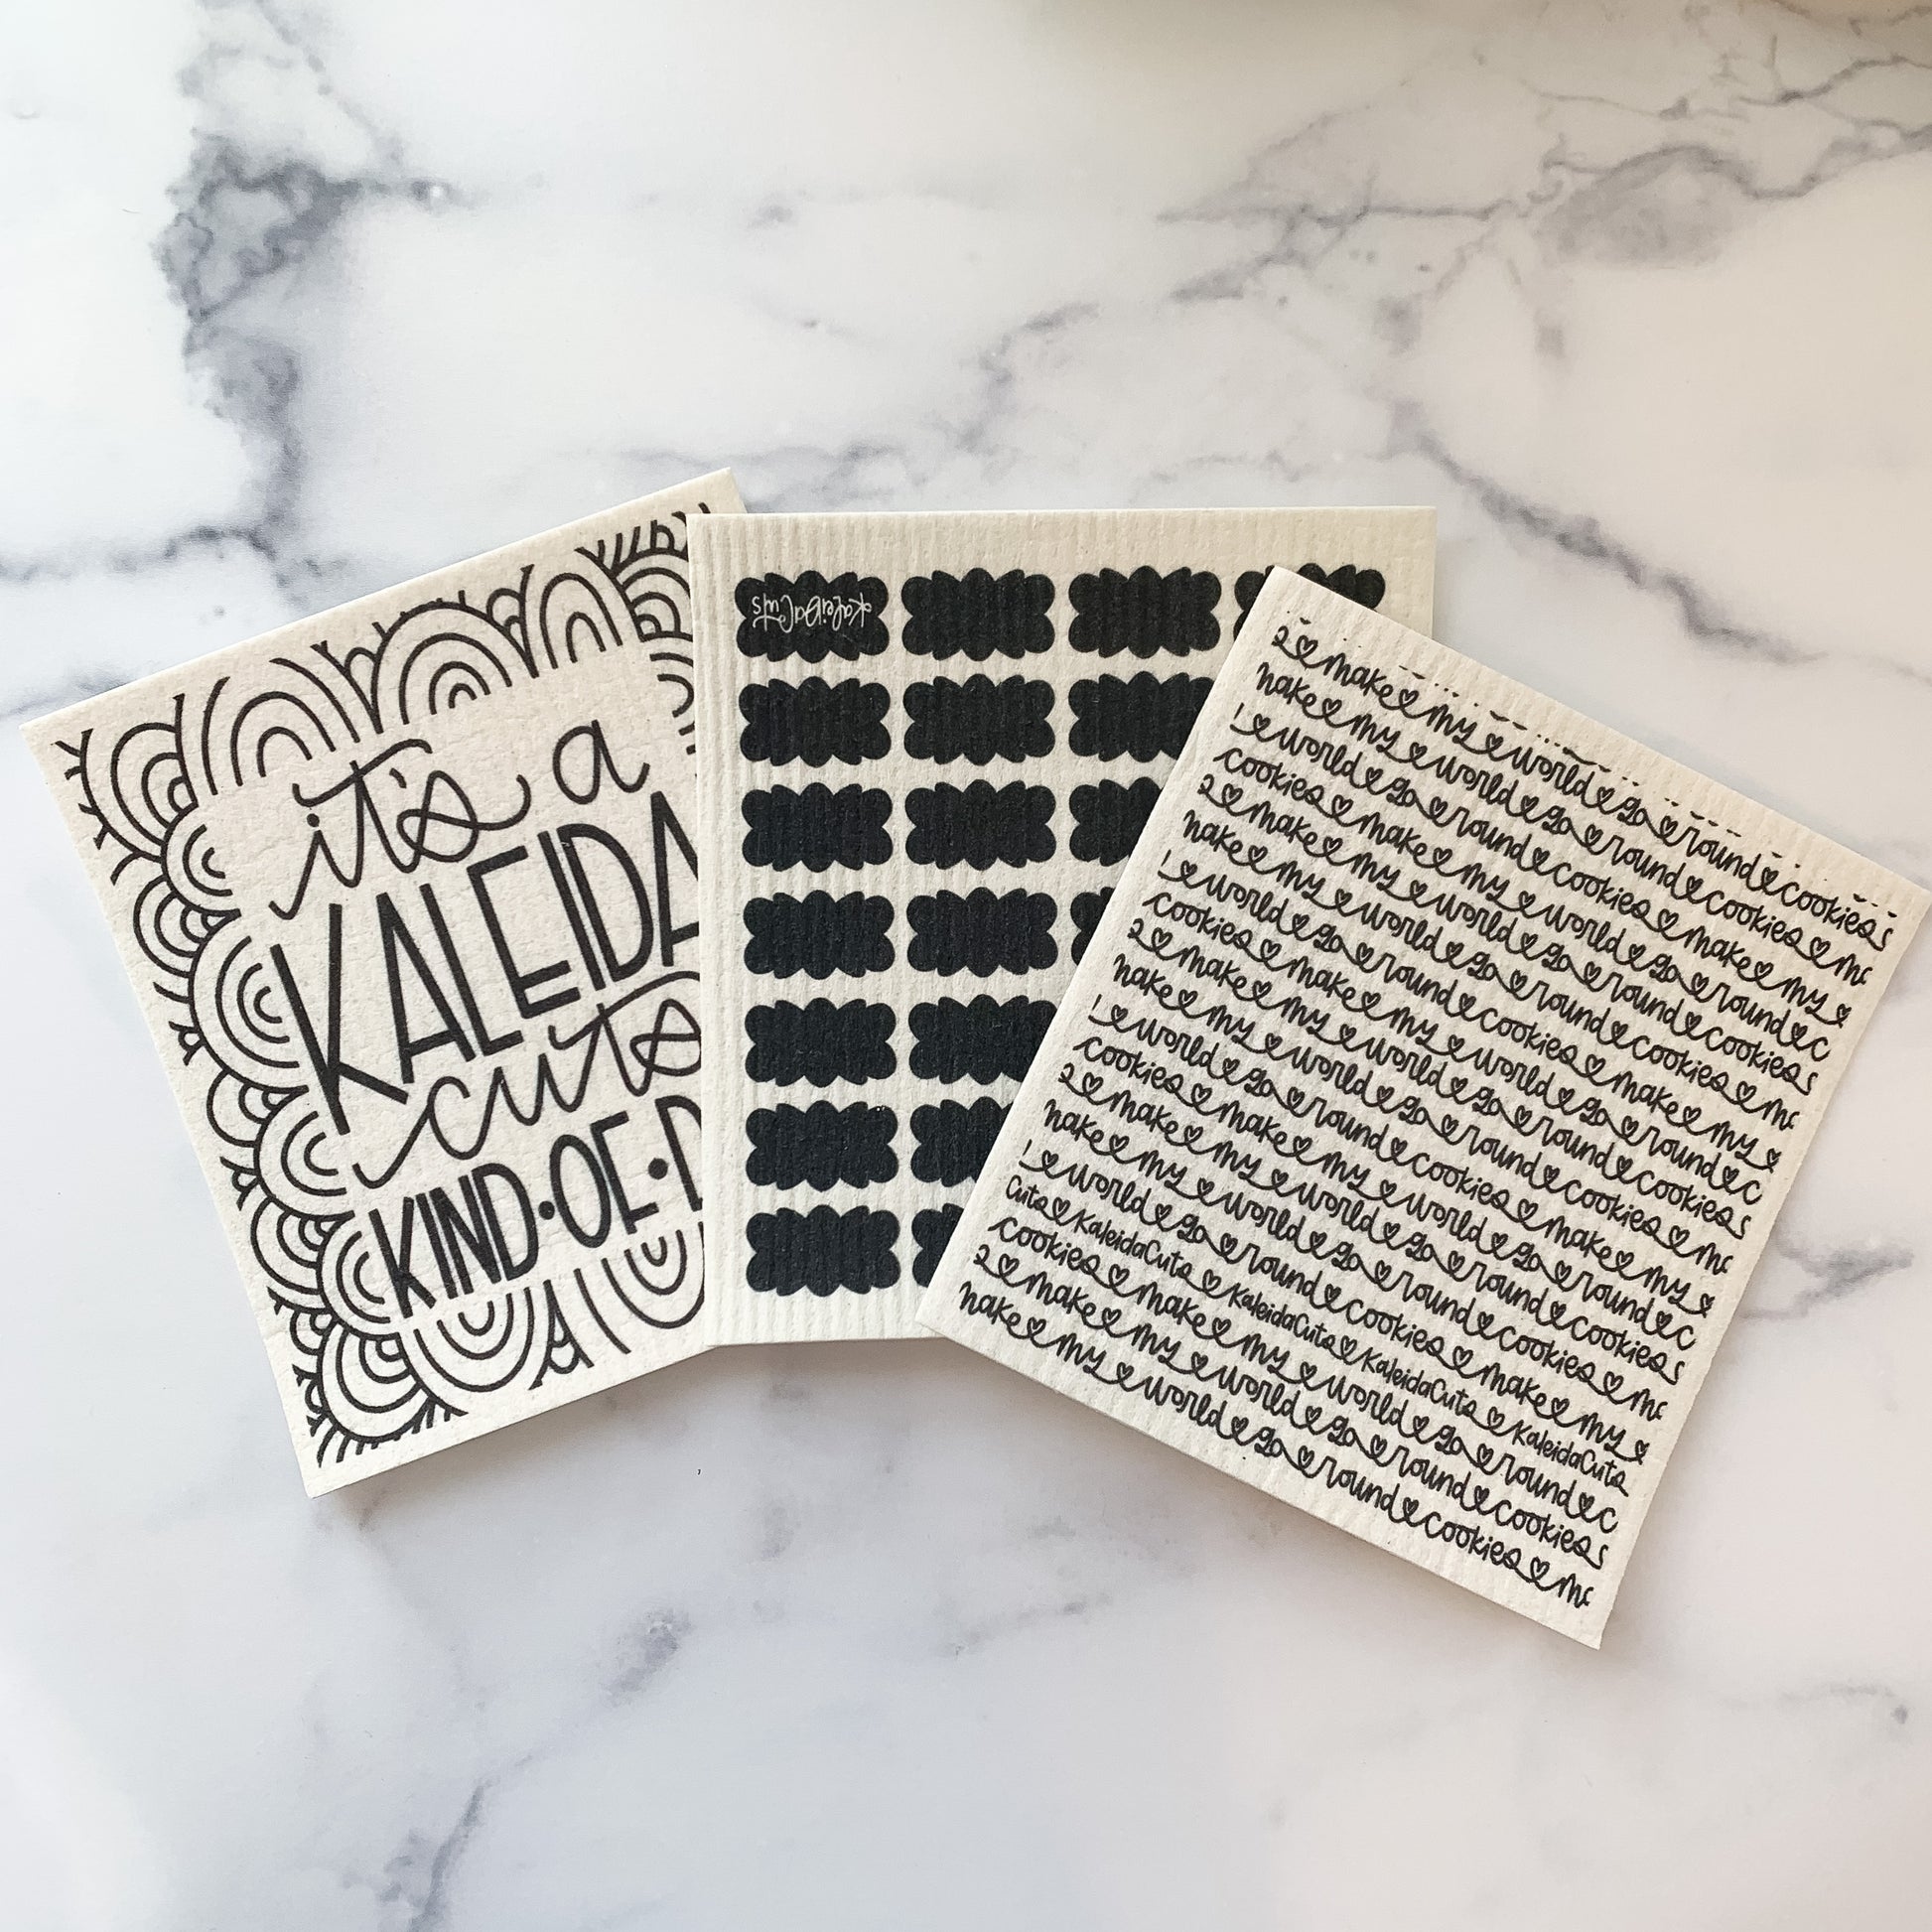 it's a
KALEIDA
cuts
KIND•OF•
KaleidaCuts
♥make♥my♥world♥go♥round♥cookies
make♥my♥world♥go♥round♥cookies♥
♥world♥go♥round♥cookies♥make♥my♥
cookies♥make♥my♥world♥go♥round♥c
♥make♥my♥world♥go♥round♥cookies
make♥my♥world♥go♥round♥cookies♥
♥world♥go♥round♥cookies♥make♥my♥
cookies♥make♥my♥world♥go♥round♥c
♥make♥my♥world♥go♥round♥cookies
make♥my♥world♥go♥round♥cookies♥
♥world♥go♥round♥cookies♥make♥my♥
cookies♥make♥my♥world♥go♥round♥c
♥make♥my♥world♥go♥round♥cookies
make♥my♥world♥go♥round♥cookies♥
♥world♥go♥round♥cookies♥make♥my♥
Cuts♥KaleidaCuts♥KaleidaCuts♥KaleidaCuts♥KaleidaCuts
cookies♥make♥my♥world♥go♥round♥c
♥make♥my♥world♥go♥round♥cookies
make♥my♥world♥go♥round♥cookies♥